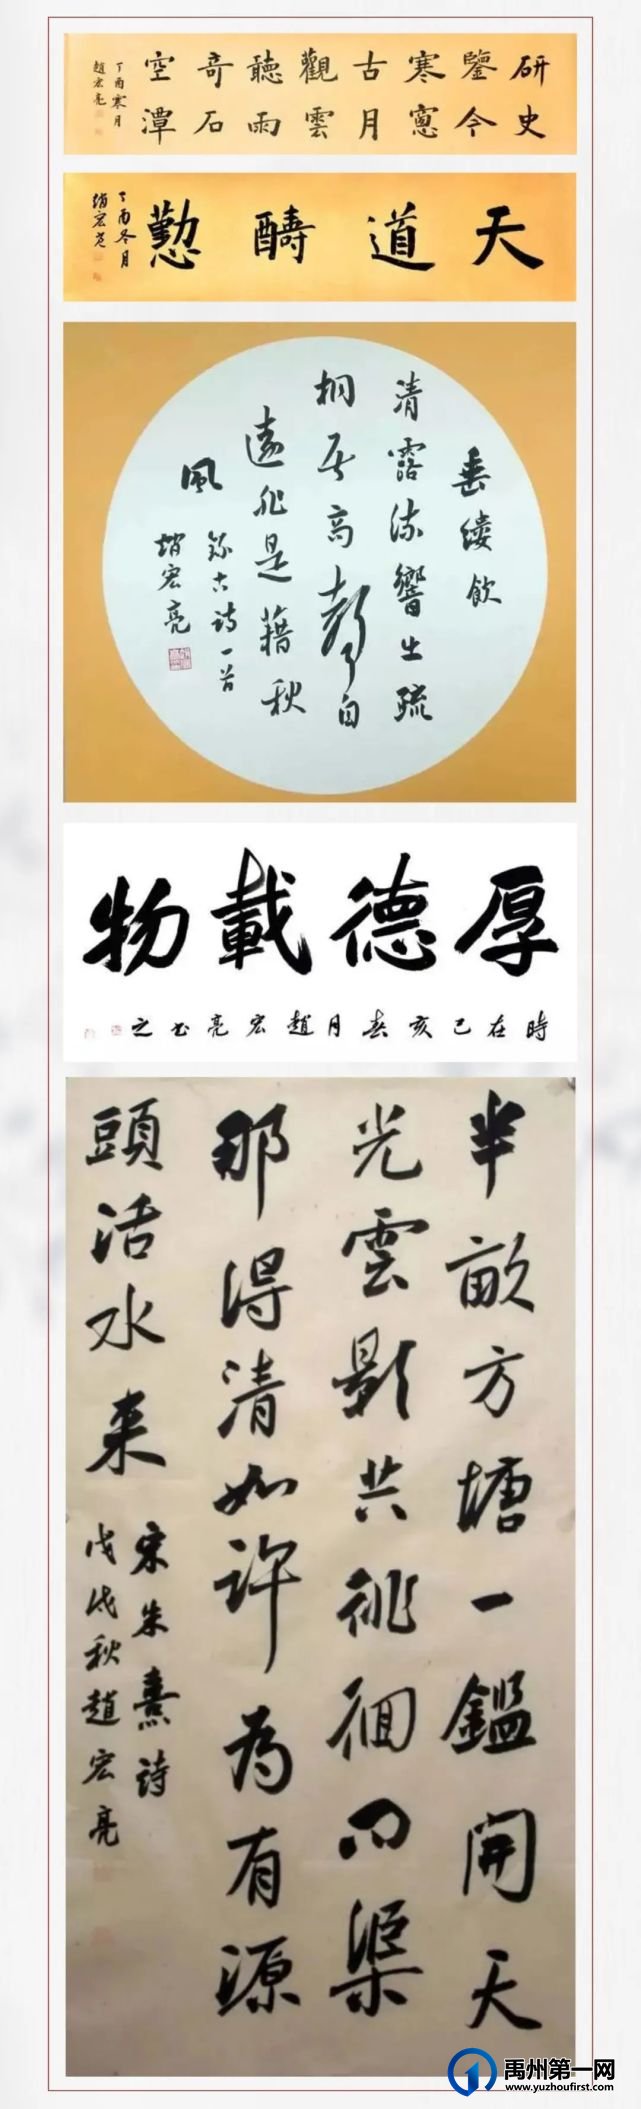 研史
鑒今
寒窻
古月
觀雲
聽雨
奇石
空潭
丁酉寒月
趙宏亮
天道醻懃
丁酉冬月
趙宏亮
垂緌飲
清露流響出疏
桐居高聲自
遠非是藉秋
風
錄古詩一首
趙宏亮
厚德載物
時在己亥春月趙宏亮书之
半畝方塘一鑑開天
光雲影共徘徊问渠
那得清如许为有源
頭活水来
宋朱熹詩
戊戌秋趙宏亮
禹州第一网
www.yuzhoufirst.com